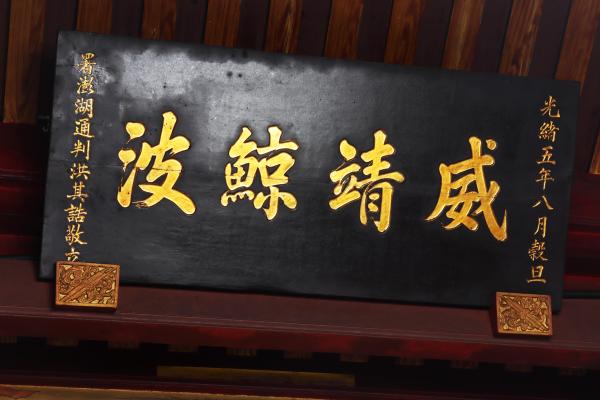 光緒五年八月穀旦
威靖鯨波
署澎湖通判洪其誥敬立